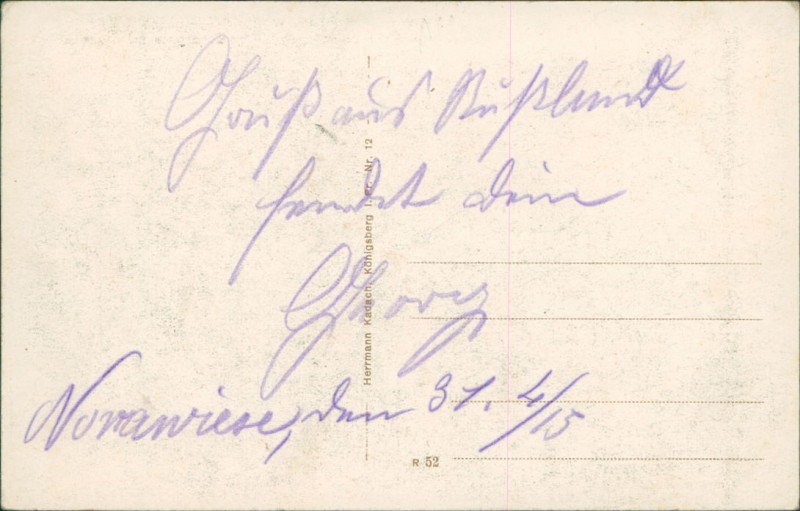 Gruß aus Rußland
sendet dein
Georg
Novawiese, den 31. 4/15
Herrmann Kadach, Königsberg i. Pr. Nr. 12
R 52